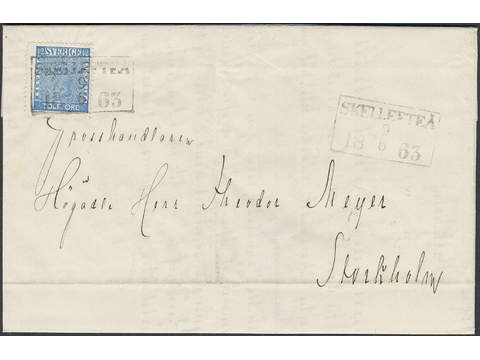 SVERIGE
TOLF ÖRE
63
SKELLEFTEÅ
9
18 6 63
Grosshandlaren
Högädle Herr Theodor Meyer
Stockholm